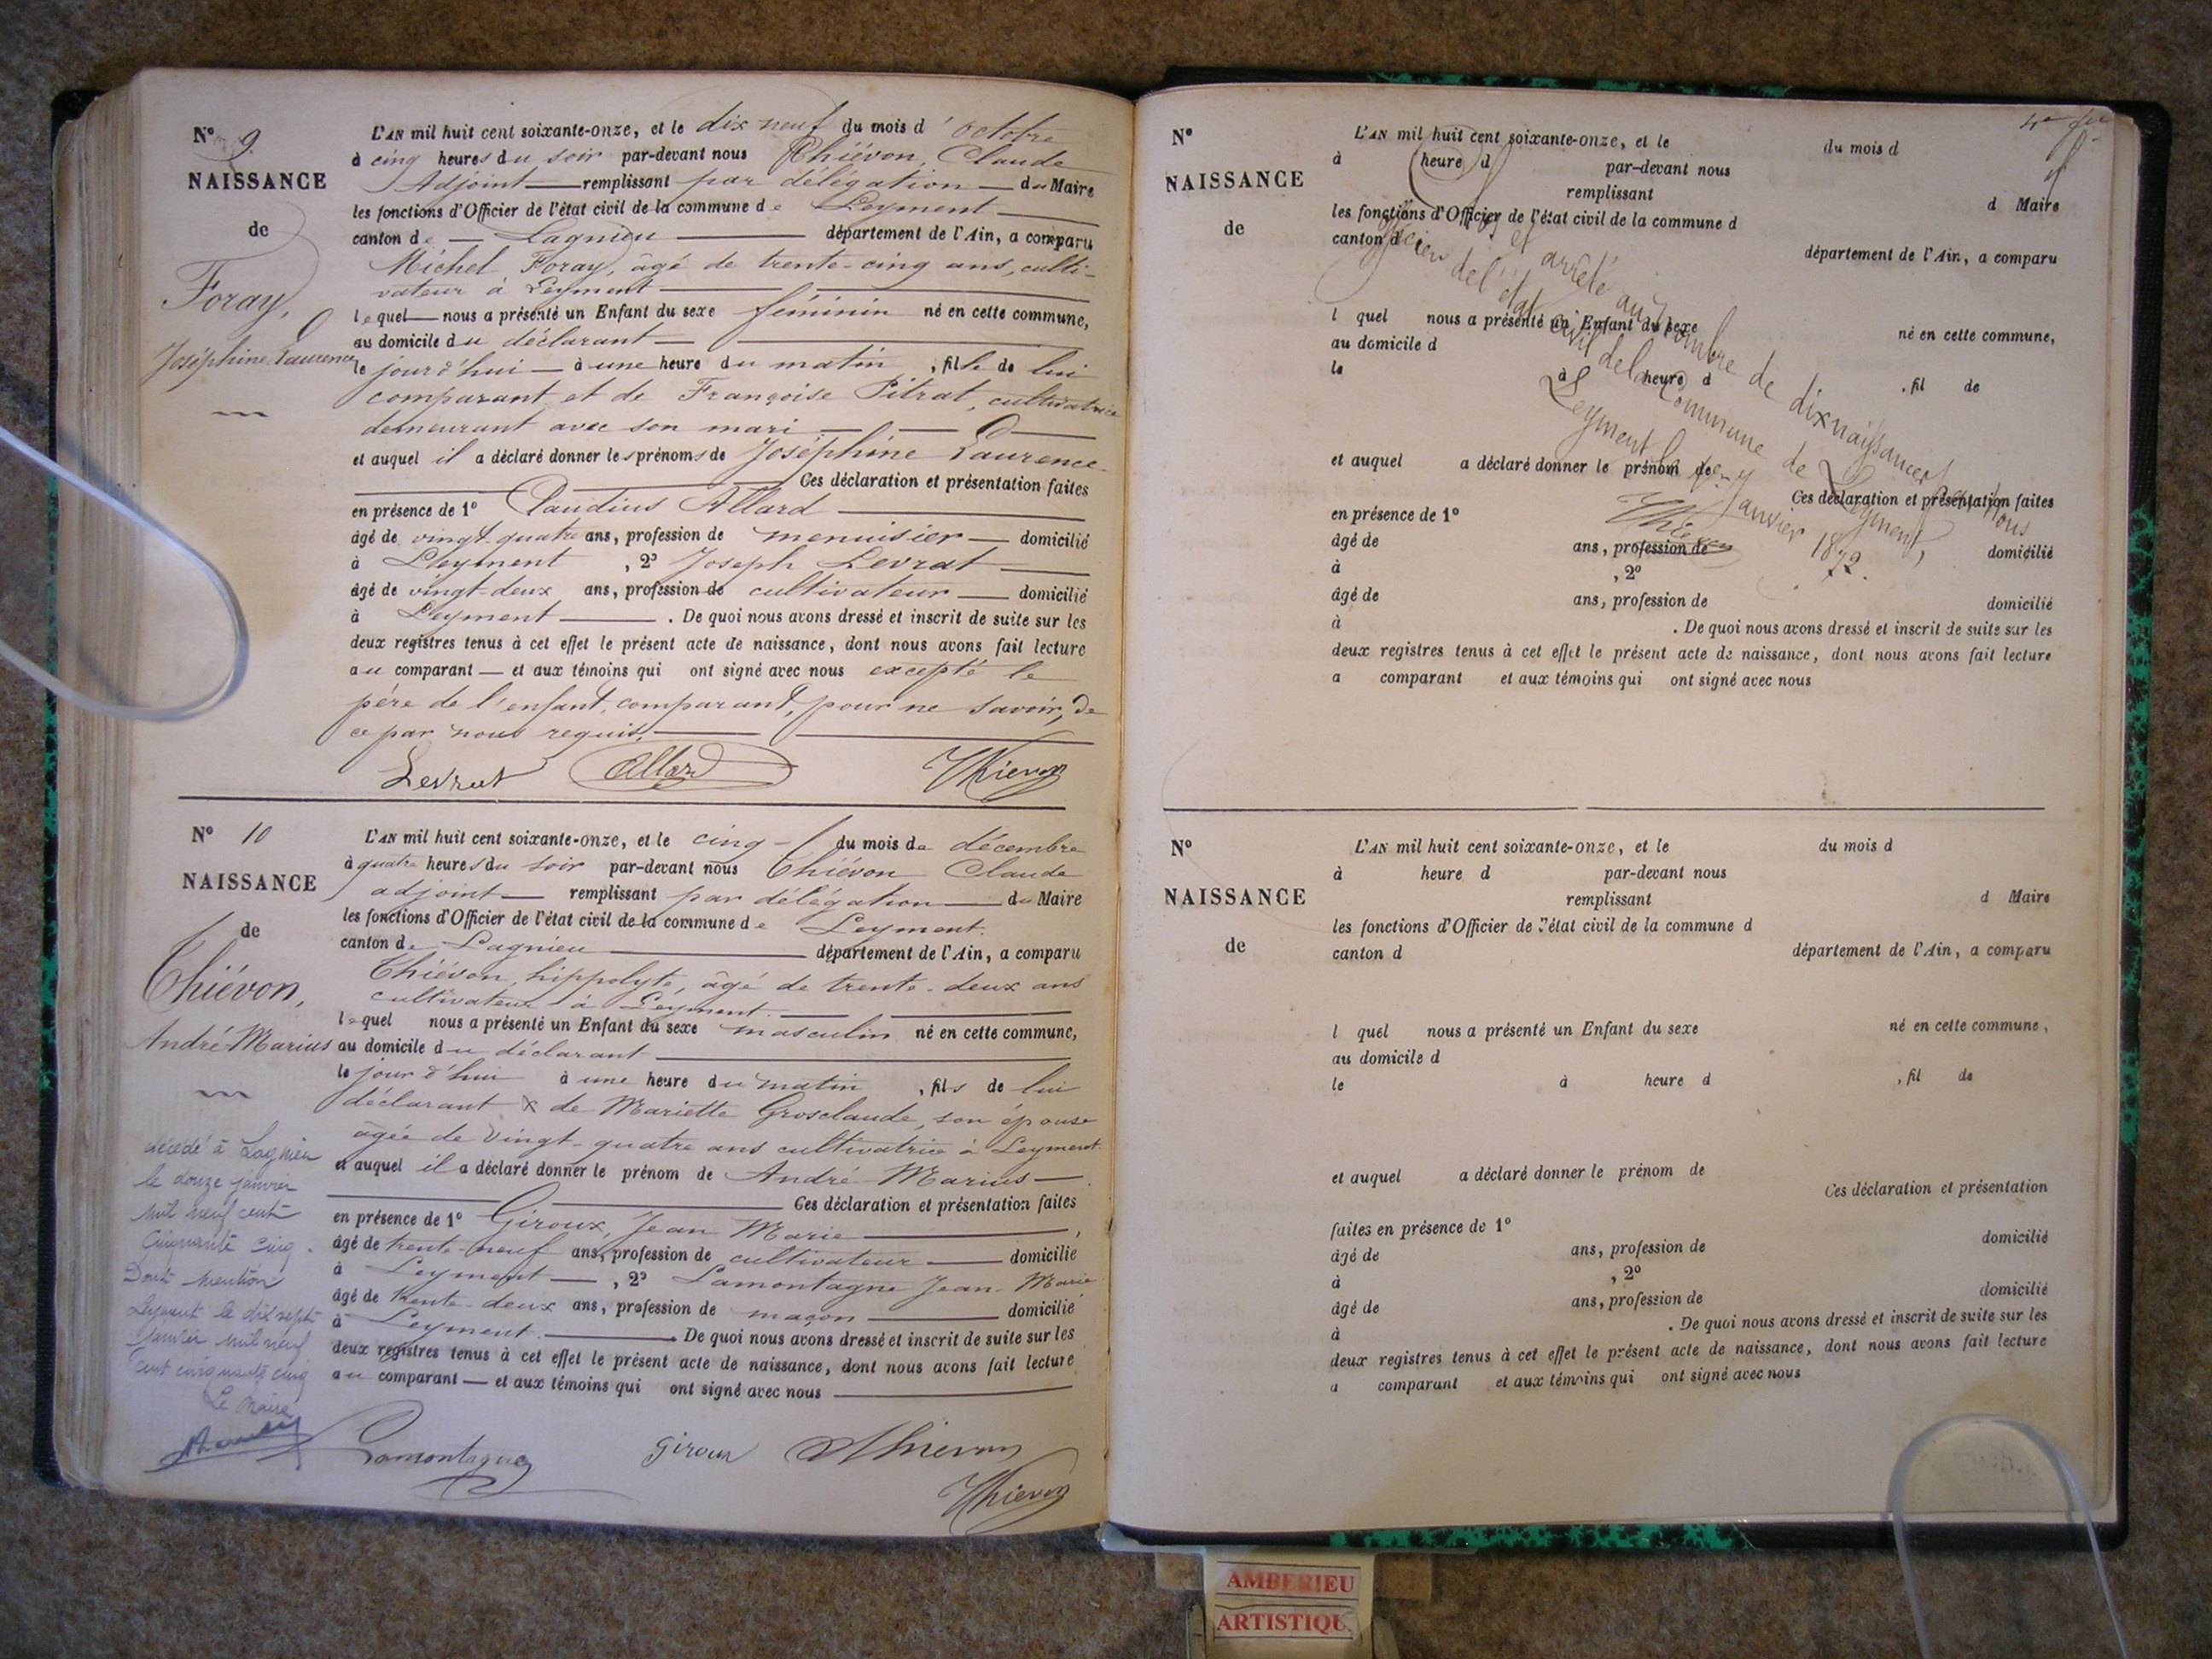 N° 9.
NAISSANCE
de
Foray,
Joséphine Laurence
L'AN mil huit cent soixante-onze, et le dix neuf du mois d'octobre
à cinq heures du soir par-devant nous Thiévon, Claude
Adjoint remplissant par délégation du Maire
les fonctions d'Officier de l'état civil de la commune de Leyment
canton de Lagnieu département de l'Ain, a comparu
Michel Foray, âgé de trente-cinq ans, culti-
vateur à Leyment
lequel nous a présenté un Enfant du sexe féminin né en cette commune,
au domicile du déclarant
le jourd'hui à une heure du matin, fille de lui
comparant et de Françoise Pitrat, cultivatrice
demeurant avec son mari
et auquel il a déclaré donner les prénoms de Joséphine Laurence
Ces déclaration et présentation faites
en présence de 1° Claudius Allard
âgé de vingt-quatre ans, profession de menuisier domicilié
à Leyment, 2° Joseph Levrat
âgé de vingt-deux ans, profession de cultivateur domicilié
à Leyment. De quoi nous avons dressé et inscrit de suite sur les
deux registres tenus à cet effet le présent acte de naissance, dont nous avons fait lecture
au comparant et aux témoins qui ont signé avec nous excepté le
père de l'enfant, comparant, pour ne savoir, de
ce par nous requis.
Levrat Allard Thievon
N° 10
NAISSANCE
de
Thiévon,
André-Marius
L'AN mil huit cent soixante-onze, et le cinq du mois de décembre
à quatre heures du soir par-devant nous Thiévon Claude
adjoint remplissant par délégation du Maire
les fonctions d'Officier de l'état civil de la commune de Leyment.
canton de Lagnieu département de l'Ain, a comparu
Thiévon, hippolyte, âgé de trente-deux ans
cultivateur à Leyment.
lequel nous a présenté un Enfant du sexe masculin né en cette commune,
au domicile du déclarant
le jour d'hui à une heure du matin, fils de lui
déclarant & de Mariette Grosclaude, son épouse
âgée de vingt-quatre ans cultivatrice à Leyment.
et auquel il a déclaré donner le prénom de André-Marius
Ces déclaration et présentation faites
en présence de 1° Giroux, Jean Marie,
âgé de trente-neuf ans, profession de cultivateur domicilié
à Leyment, 2° Lamontagne Jean-Marie
âgé de trente-deux ans, profession de maçon domicilié
à Leyment. De quoi nous avons dressé et inscrit de suite sur les
deux registres tenus à cet effet le présent acte de naissance, dont nous avons fait lecture
au comparant et aux témoins qui ont signé avec nous
décédé à Lagnieu
le douze janvier
mil neuf cent
cinquante cinq.
Dont mention
Leyment le dix sept
janvier mil neuf
cent cinquante cinq
Le Maire
Lamontagne Giroux Thievon
Thievon
N°
NAISSANCE
de
L'AN mil huit cent soixante-onze, et le du mois d
à heure d par-devant nous
remplissant d Maire
les fonctions d'Officier de l'état civil de la commune d
canton d département de l'Ain, a comparu
l quel nous a présenté un Enfant du sexe né en cette commune,
au domicile d
le à heure d, fil de
et auquel a déclaré donner le prénom de
Ces déclaration et présentation faites
en présence de 1°
âgé de ans, profession de domicilié
à, 2°
âgé de ans, profession de domicilié
à. De quoi nous avons dressé et inscrit de suite sur les
deux registres tenus à cet effet le présent acte de naissance, dont nous avons fait lecture
a comparant et aux témoins qui ont signé avec nous
et arrêté au nombre de dix naissances par nous
de l'état civil de la Commune de Leyment,
Leyment janvier 1872.
N°
NAISSANCE
de
L'AN mil huit cent soixante-onze, et le du mois d
à heure d par-devant nous
remplissant d Maire
les fonctions d'Officier de l'état civil de la commune d
canton d département de l'Ain, a comparu
l quel nous a présenté un Enfant du sexe né en cette commune,
au domicile d
le à heure d, fil de
et auquel a déclaré donner le prénom de
Ces déclaration et présentation
faites en présence de 1° domicilié
âgé de ans, profession de
à, 2° domicilié
âgé de ans, profession de
à. De quoi nous avons dressé et inscrit de suite sur les
deux registres tenus à cet effet le présent acte de naissance, dont nous avons fait lecture
a comparant et aux témoins qui ont signé avec nous
AMBERIEU
ARTISTIQU